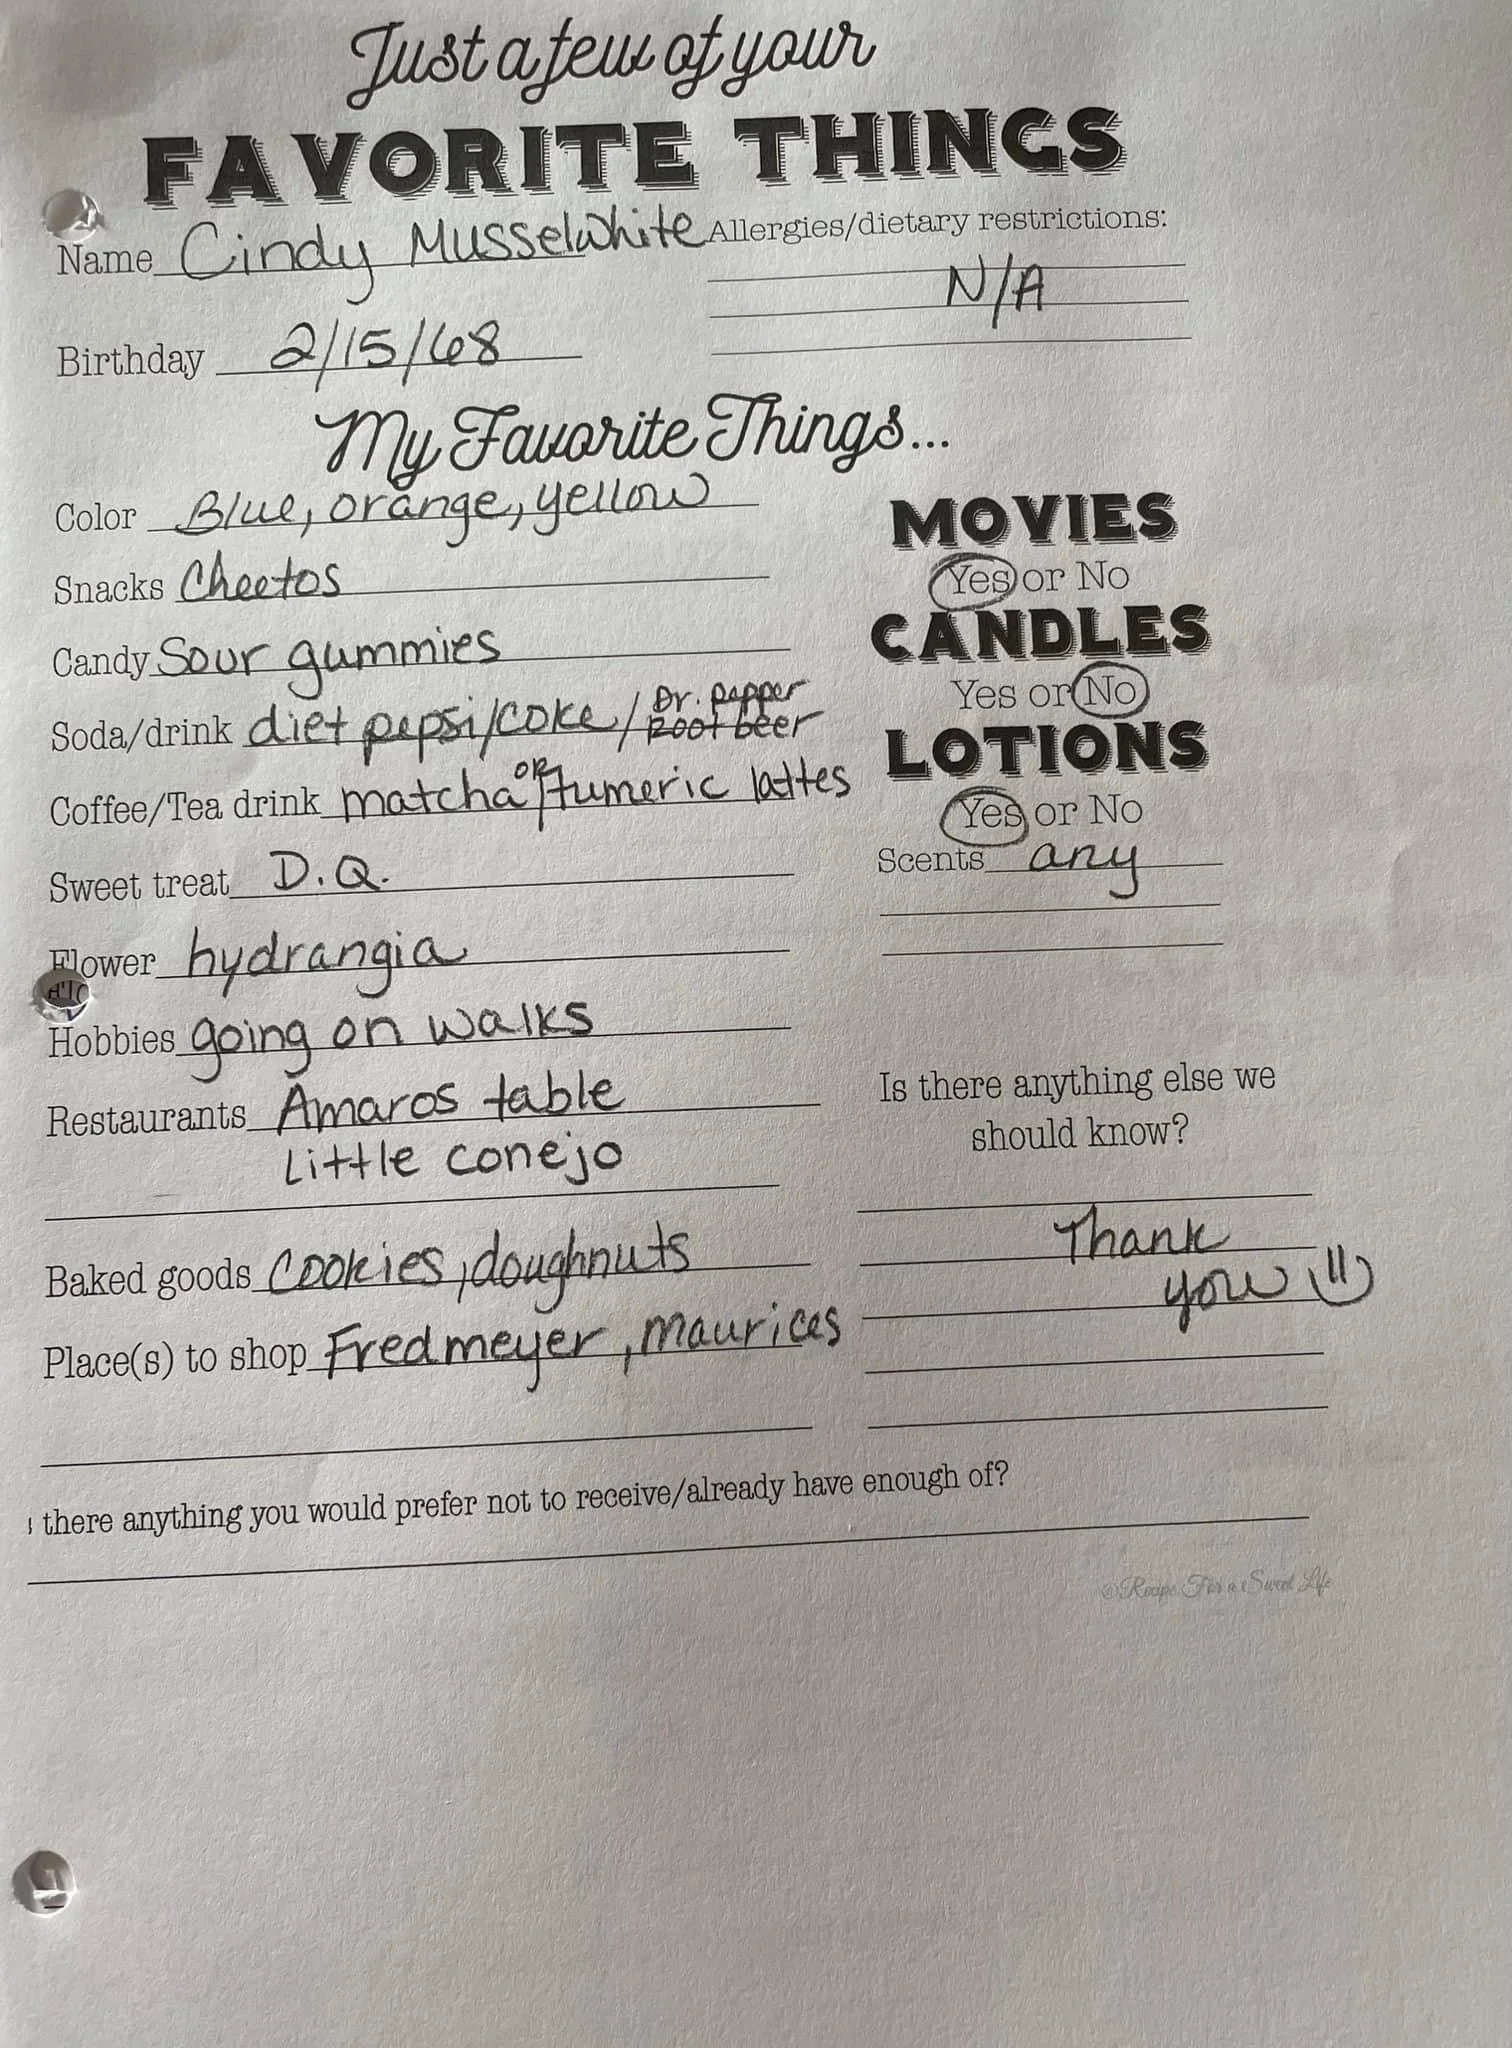 Just a few of your
FAVORITE THINGS
Name Cindy Musselwhite
Allergies/dietary restrictions:
N/A
Birthday 2/15/68
My Favorite Things...
Color Blue, orange, yellow
Snacks Cheetos
Candy Sour gummies
Soda/drink diet pepsi/coke/ Dr. pepper
Root beer
Coffee/Tea drink matcha or tumeric lattes
Sweet treat D.Q.
Flower hydrangia
Hobbies going on walks
Restaurants Amaros table
Little conejo
Baked goods cookies, doughnuts
Place(s) to shop Fredmeyer, maurices
MOVIES
Yes or No
CANDLES
Yes or No
LOTIONS
Yes or No
Scents any
Is there anything else we
should know?
Thank
you
there anything you would prefer not to receive/already have enough of?
©Recipe For a Sweet Life